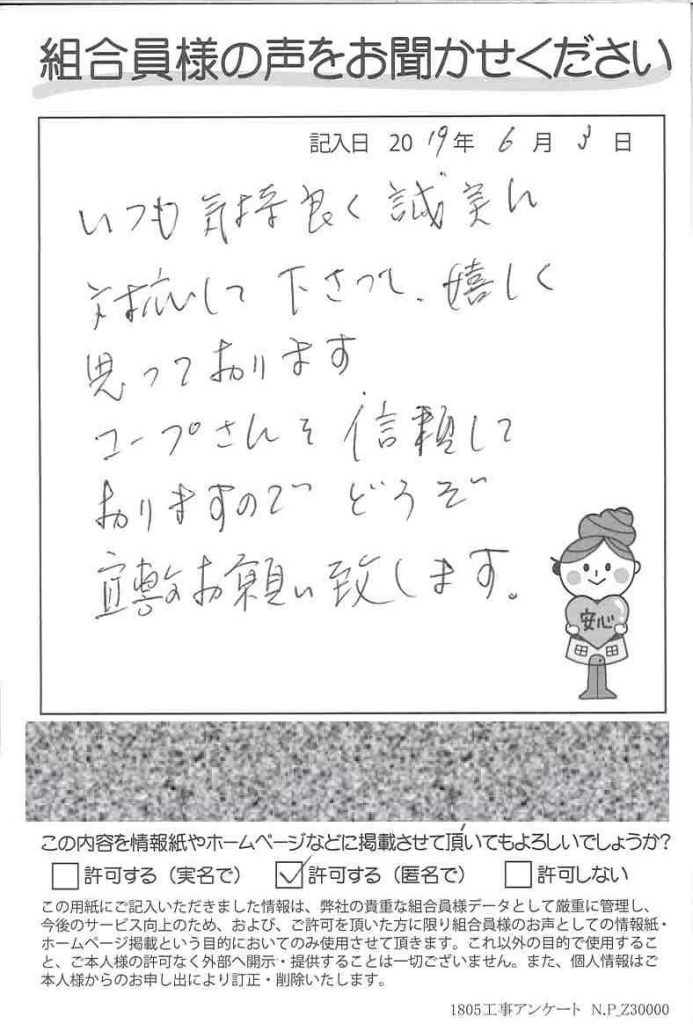 組合員様の声をお聞かせください
記入日 2019年 6月 3日
いつも気持良く誠実に
対応して下さって、嬉しく
思っております
コープさんを信頼して
おりますので どうぞ
宜敷お願い致します。
安心
この内容を情報紙やホームページなどに掲載させて頂いてもよろしいでしょうか?
許可する（実名で） 許可する（匿名で） 許可しない
この用紙にご記入いただきました情報は、弊社の貴重な組合員様データとして厳重に管理し、
今後のサービス向上のため、および、ご許可を頂いた方に限り組合員様のお声としての情報紙・
ホームページ掲載という目的においてのみ使用させて頂きます。これ以外の目的で使用するこ
と、ご本人様の許可なく外部へ開示・提供することは一切ございません。また、個人情報はご
本人様からのお申し出により訂正・削除いたします。
1805工事アンケート N.P_Z30000